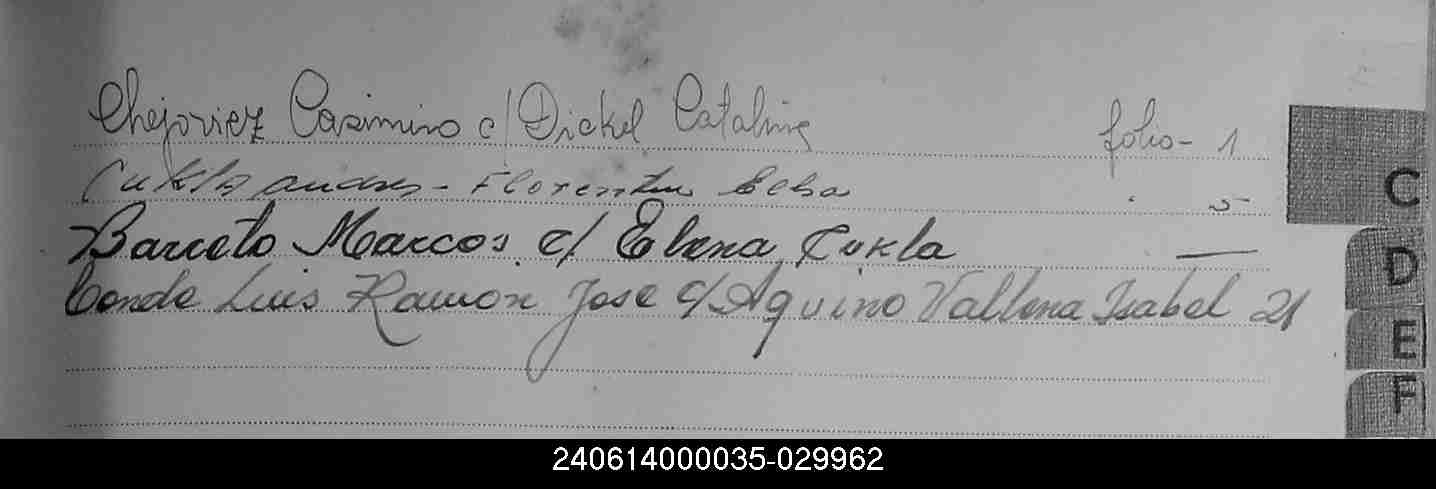 Chejoviez Casimiro c/ Dickel Catalina folio- 1
Cukla andres - Florentin Elba . 5
Barreto Marcos. c/ Elena Cukla —
Conde Luis Ramon Jose c/ Aquino Vallena Isabel 21
C
D
E
F
240614000035-029962